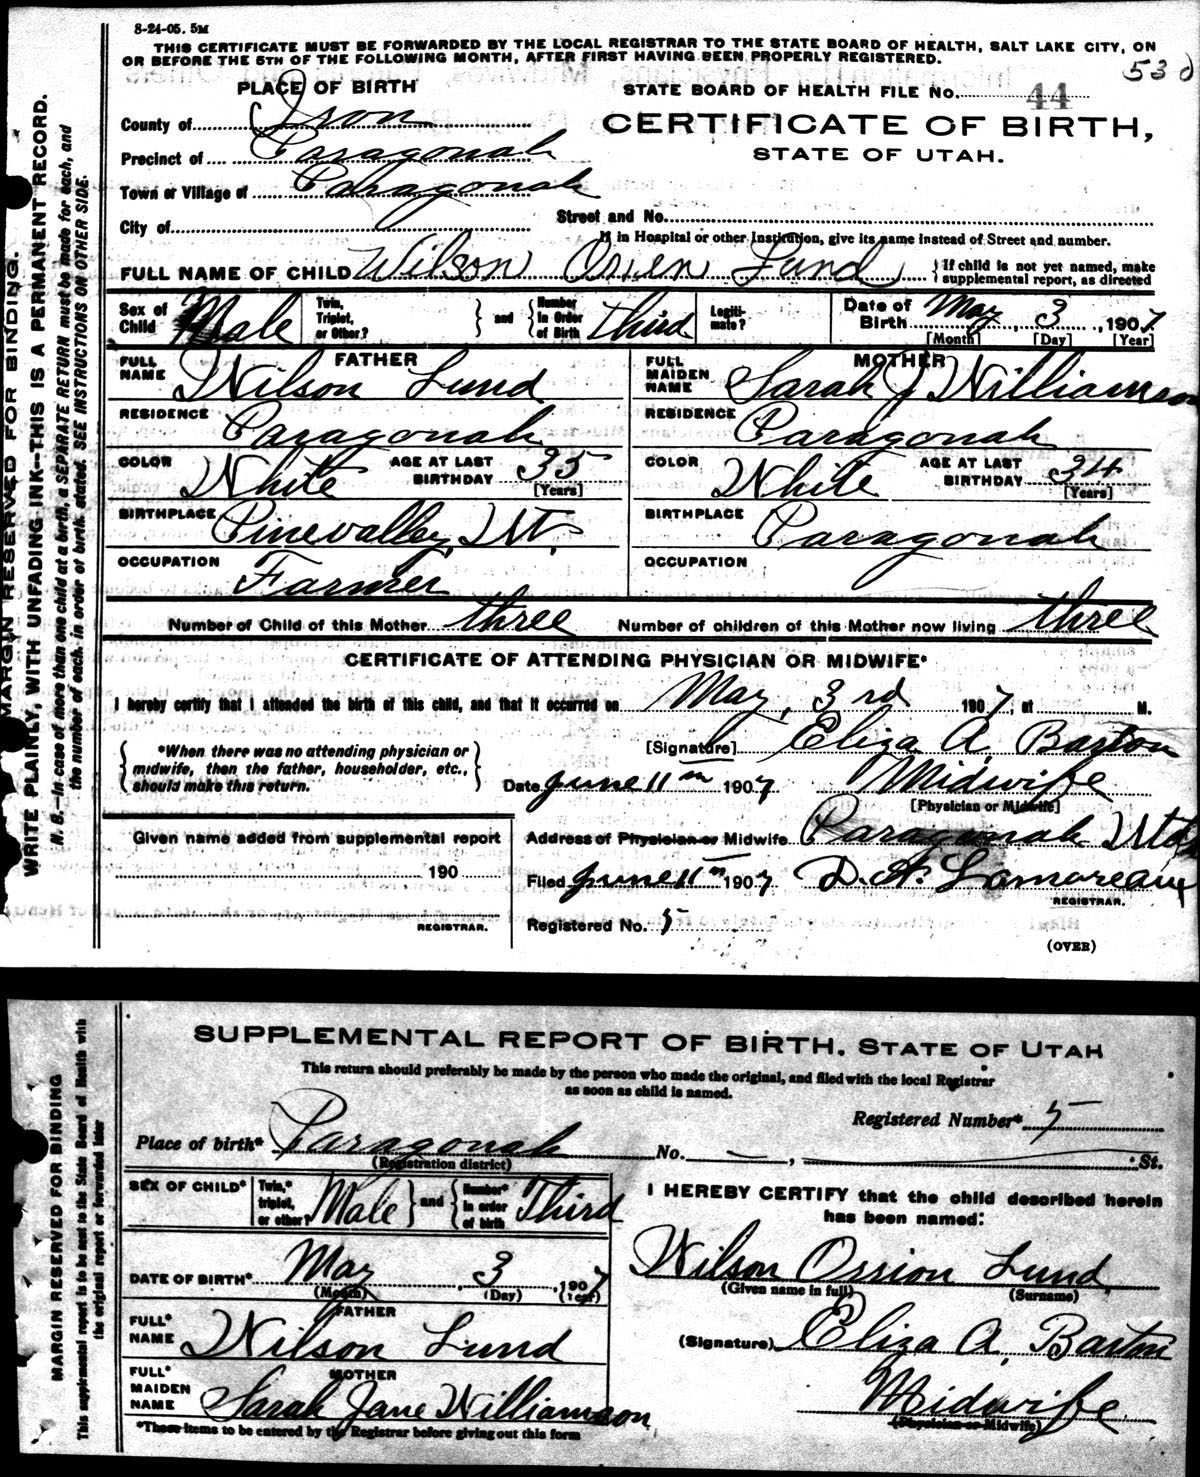 8-24-05. 5M
THIS CERTIFICATE MUST BE FORWARDED BY THE LOCAL REGISTRAR TO THE STATE BOARD OF HEALTH, SALT LAKE CITY, ON
OR BEFORE THE 5TH OF THE FOLLOWING MONTH, AFTER FIRST HAVING BEEN PROPERLY REGISTERED.
530
PLACE OF BIRTH
STATE BOARD OF HEALTH FILE No. 44
County of Iron
CERTIFICATE OF BIRTH,
STATE OF UTAH.
Precinct of Paragonah
Town or Village of Paragonah
City of
Street and No.
If in Hospital or other Institution, give its name instead of Street and number.
FULL NAME OF CHILD Wilson Orsen Lund { If child is not yet named, make supplemental report, as directed
Sex of Child Male Twin, Triplet, or Other? } and { Number in Order of Birth third Legitimate? Date of Birth May 3, 1907
[Month] [Day] [Year]
FATHER MOTHER
FULL NAME Wilson Lund FULL MAIDEN NAME Sarah J Williamson
RESIDENCE Paragonah RESIDENCE Paragonah
COLOR White AGE AT LAST BIRTHDAY 35 [Years] COLOR White AGE AT LAST BIRTHDAY 34 [Years]
BIRTHPLACE Pinevalley, Ut. BIRTHPLACE Paragonah
OCCUPATION Farmer OCCUPATION
Number of Child of this Mother three Number of children of this Mother now living three
CERTIFICATE OF ATTENDING PHYSICIAN OR MIDWIFE*
I hereby certify that I attended the birth of this child, and that it occurred on May, 3rd 1907, at M.
{ *When there was no attending physician or midwife, then the father, householder, etc., should make this return. }
[Signature] Eliza A Barton
Date June 11th 1907 Midwife
[Physician or Midwife]
Given name added from supplemental report
190
REGISTRAR.
Address of Physician or Midwife Paragonah Utah
Filed June 11th 1907 D. A. Lamoreaux
REGISTRAR.
Registered No. 5
(OVER)
MARGIN RESERVED FOR BINDING.
WRITE PLAINLY, WITH UNFADING INK—THIS IS A PERMANENT RECORD.
N. B.—In case of more than one child at a birth, a SEPARATE RETURN must be made for each, and
the number of each, in order of birth, stated. SEE INSTRUCTIONS ON OTHER SIDE.
SUPPLEMENTAL REPORT OF BIRTH. STATE OF UTAH
This return should preferably be made by the person who made the original, and filed with the local Registrar
as soon as child is named.
Registered Number* 5
Place of birth* Paragonah No. — , St.
(Registration district)
SEX OF CHILD* Twin,* triplet, or other? Male } and { Number* in order of birth Third
DATE OF BIRTH* May 3, 1907
(Month) (Day) (Year)
FATHER
FULL* NAME Wilson Lund
MOTHER
FULL* MAIDEN NAME Sarah Jane Williamson
*These items to be entered by the Registrar before giving out this form
I HEREBY CERTIFY that the child described herein
has been named:
Wilson Ossion Lund
(Given name in full) (Surname)
(Signature) Eliza A, Barton
Midwife
(Physician or Midwife)
MARGIN RESERVED FOR BINDING
This supplemental report to be sent to the State Board of Health with
the original report or forwarded later